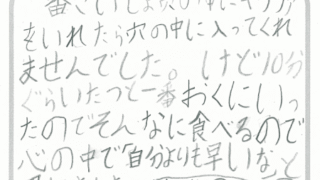 番さいしょ穴の中にキッカ
をいれたら穴の中に入ってくれ
ませんでした。けど10分
ぐらいたつと一番おくにいっ
たのでそんなに食べるので
心の中で「自分よりも早いな」と